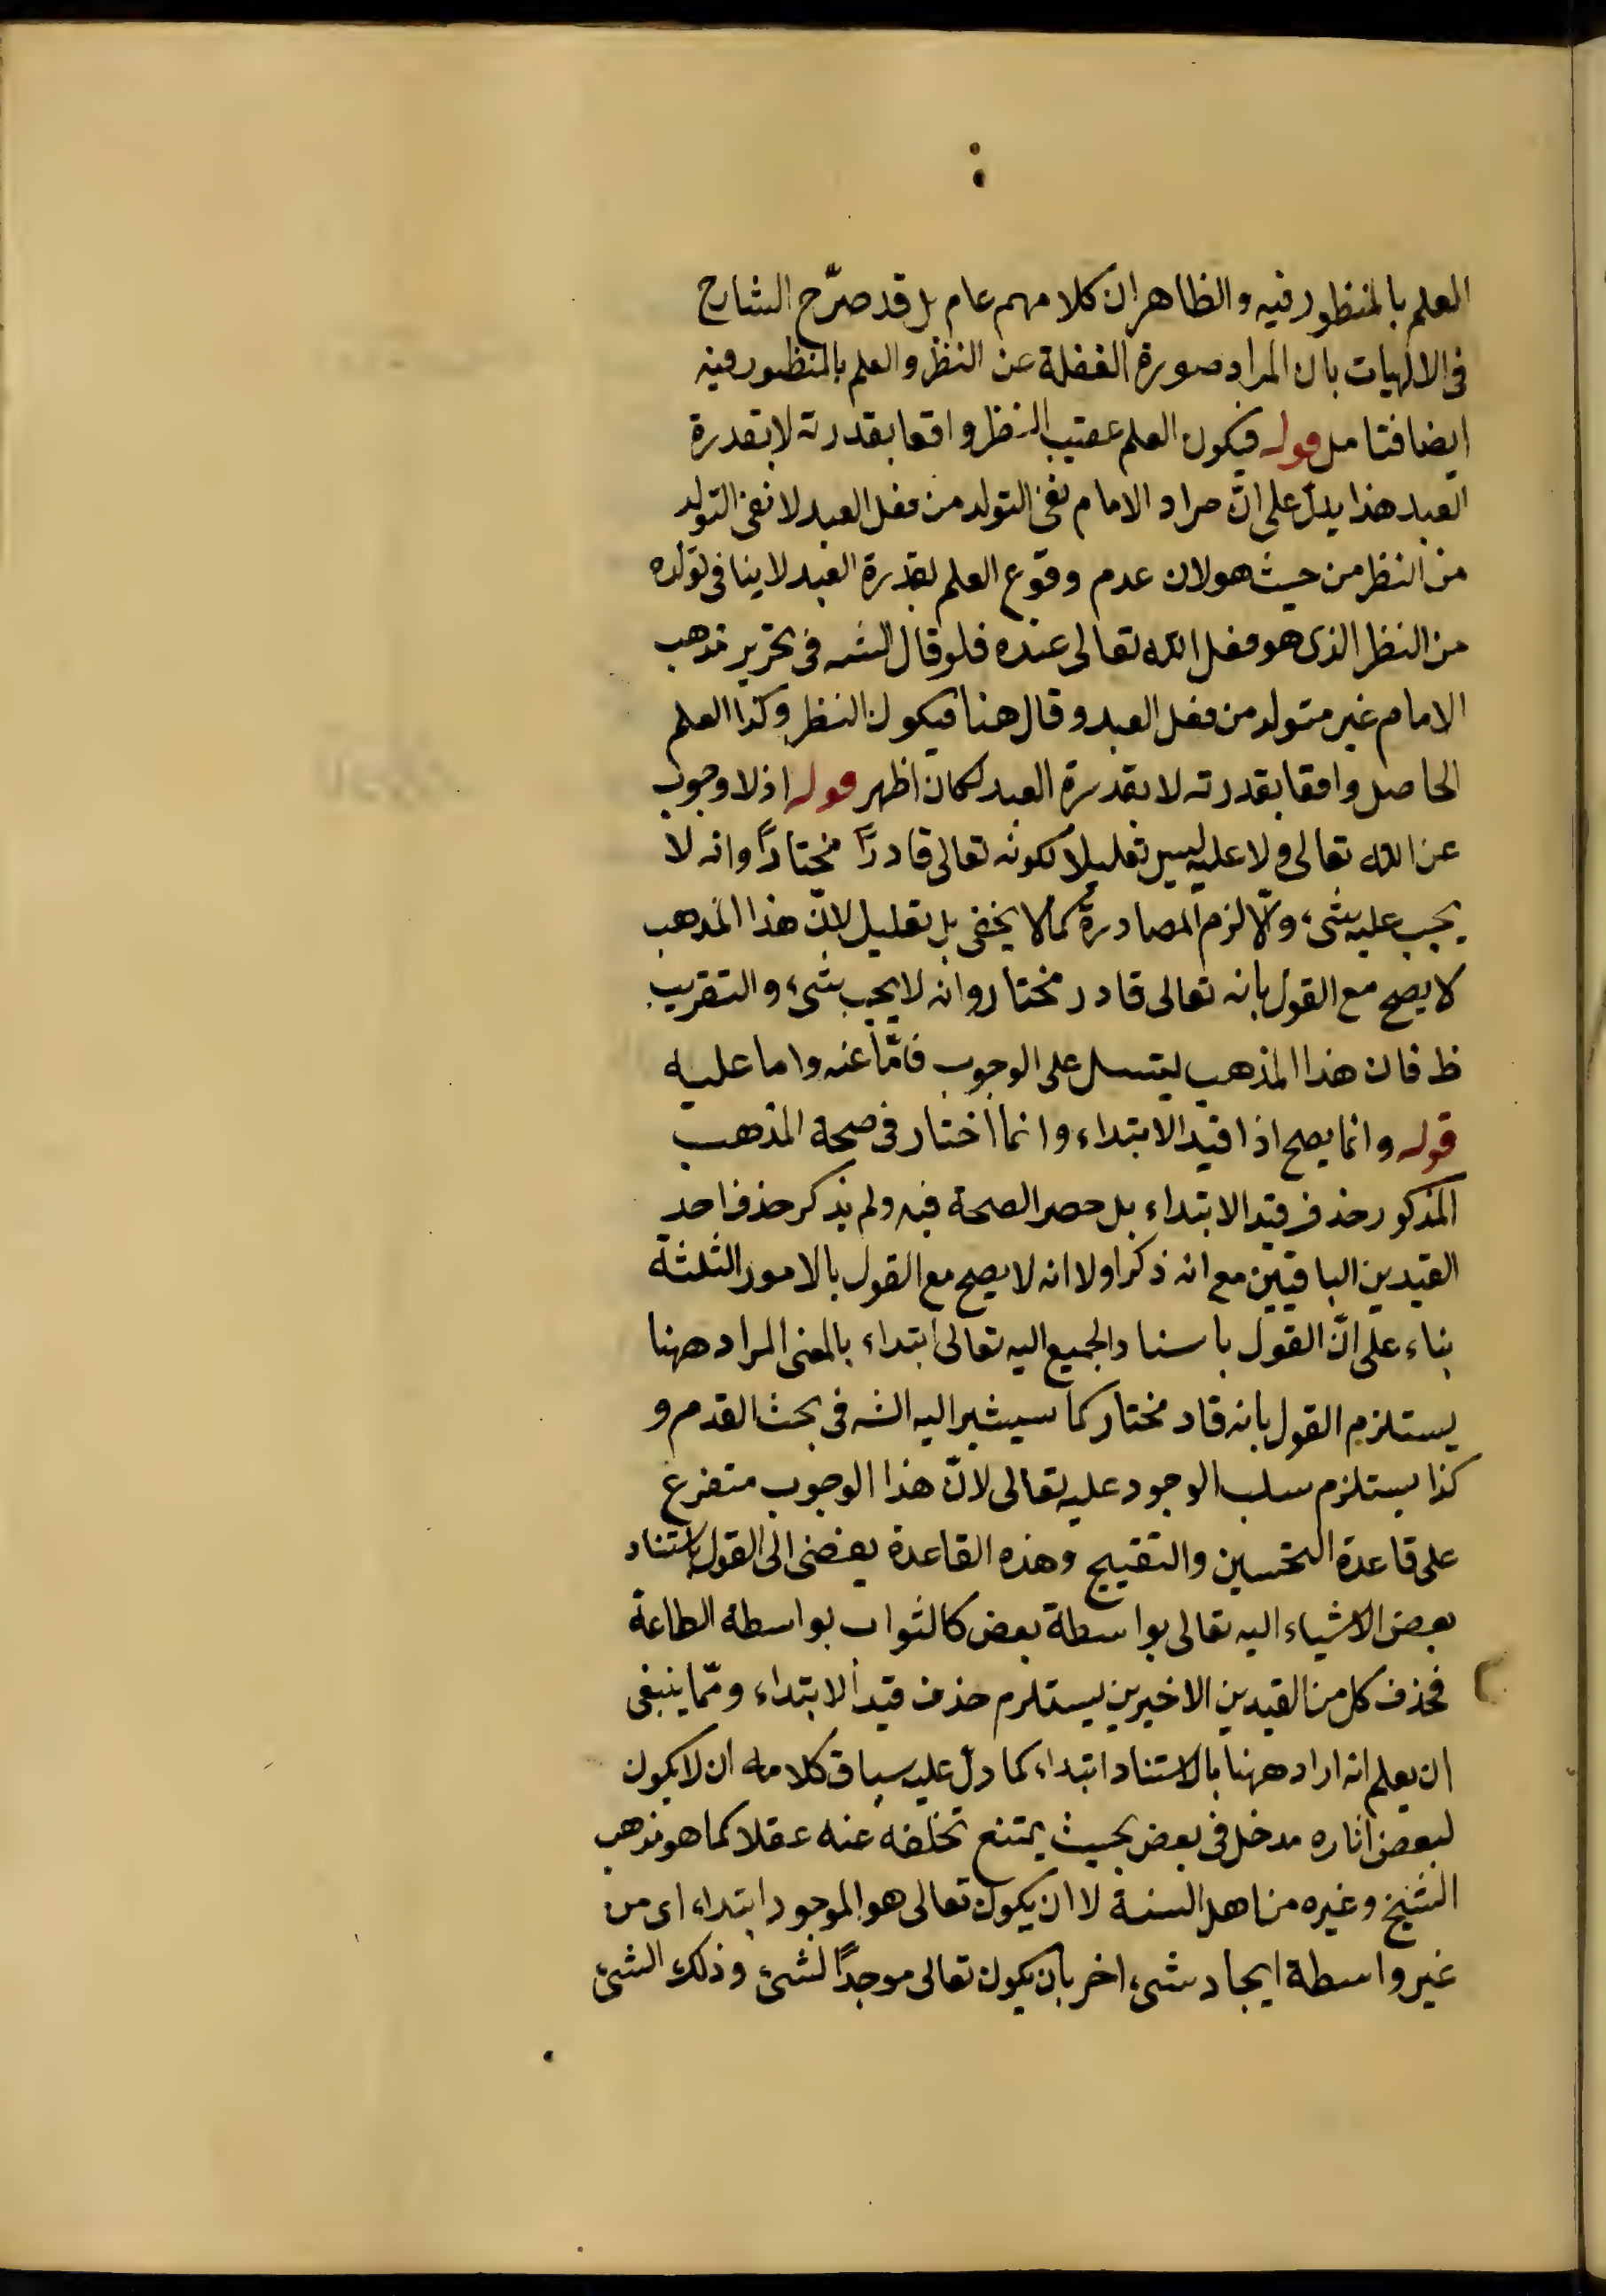 العلم بالمنظور فيه والظاهر ان كلامهم عام بل قد صرّح الشارح
فى الالهيات بان المراد صورة الغفلة عن النظر والعلم بالمنظور فيه
ايضا فتامل قوله فيكون العلم عقيب النظر واقعا بقدرته لا بقدرة
العبد هذا يدلّ على انّ مراد الامام نفى التولد من فعل العبد لا نفى التولد
من النظر من حيث هو لان عدم وقوع العلم بقدرة العبد لا ينافى تولده
من النظر الذى هو فعل الله تعالى عنده فلو قال الشه فى تحرير مذهب
الامام غير متولد من فعل العبد وقال هنا فيكون النظر وكذا العلم
الحاصل واقعا بقدرته لا بقدرة العبد لكان اظهر قوله اذ لا وجوب
عن الله تعالى ولا عليه ليس تعليلا لكونه تعالى قادرًا مختارًا وانه لا
يجب عليه شىء والّا لزم المصادرة كما لا يخفى بل تعليل لانّ هذا المذهب
لا يصح مع القول بانه تعالى قادر مختار وانه لا يجب شىء والتقريب
ظ فان هذا المذهب يشتمل على الوجوب فامّا عنه واما عليه
قوله وانما يصح اذا قيد الابتداء وانما اختار فى صحة المذهب
المذكور حذف قيد الابتداء بل حصر الصحة فيه ولم يذكر حذف احد
القيدين الباقيين مع انه ذكر اولا انه لا يصح مع القول بالامور الثلثة
بناء على انّ القول باسناد الجميع اليه تعالى ابتداء بالمعنى المراد ههنا
يستلزم القول بانه قاد مختار كما سيشير اليه الشه فى بحث القدم و
كذا يستلزم سلب الوجود عليه تعالى لانّ هذا الوجوب متفرع
على قاعدة التحسين والتقبيح وهذه القاعدة يفضى الى القول باستناد
بعض الاشياء اليه تعالى بواسطة بعض كالثواب بواسطة الطاعة
فحذف كل من القيدين الاخيرين يستلزم حذف قيد الابتداء وممّا ينبغى
ان يعلم انه اراد ههنا بالاستناد ابتداء كما دل عليه سياق كلامه ان لا يكون
لبعض اثاره مدخل فى بعض بحيث يمتنع تخلفه عنه عقلا كما هو مذهب
الشيخ وغيره من اهل السنة لا ان يكون تعالى هو الموجود ابتداء اى من
غير واسطة ايجاد شىء اخر بان يكون تعالى موجدًا لشىء وذلك الشىء